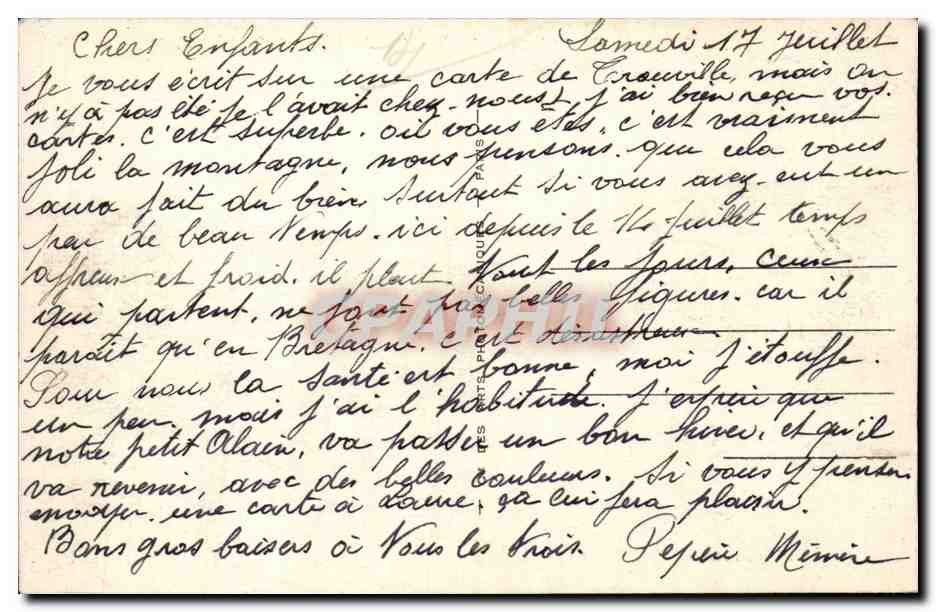 Chers Enfants. Samedi 17 Juillet
Je vous écrit sur une carte de Trouville, mais on
n'y a pas été, je l'avait chez-nous, j'ai bien reçu vos
cartes. c'est superbe. où vous êtes, c'est vraiment
joli la montagne, nous pensons. que cela vous
aura fait du bien, surtout si vous avez-eut un
peu de beau temps. ici depuis le 14 juillet temps
affreux et froid. il pleut. tout les jours, ceux
qui partent, ne font pas belles figures. car il
paraît qu'en Bretagne. c'est désastreux
Pour nous la santé est bonne, moi j'étouffe.
un peu, mais j'ai l'habitude. J'espère que
notre petit Alain, va passer un bon hiver, et qu'il
va revenir, avec des belles couleurs. Si vous y penser
envoyer. une carte à Laure, ça lui fera plaisir.
Bons gros baisers à Vous les trois. Pépère Mémère
DES ARTS PHOTOMECANIQUES - PARIS
CPAPHIL